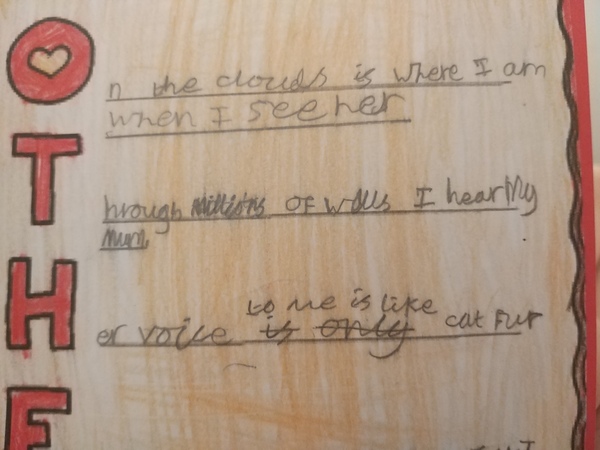 On the clouds is where I am
when I see her
Through millions of walls I hear My
Mum
to me is like
Her voice is only cat fur
E